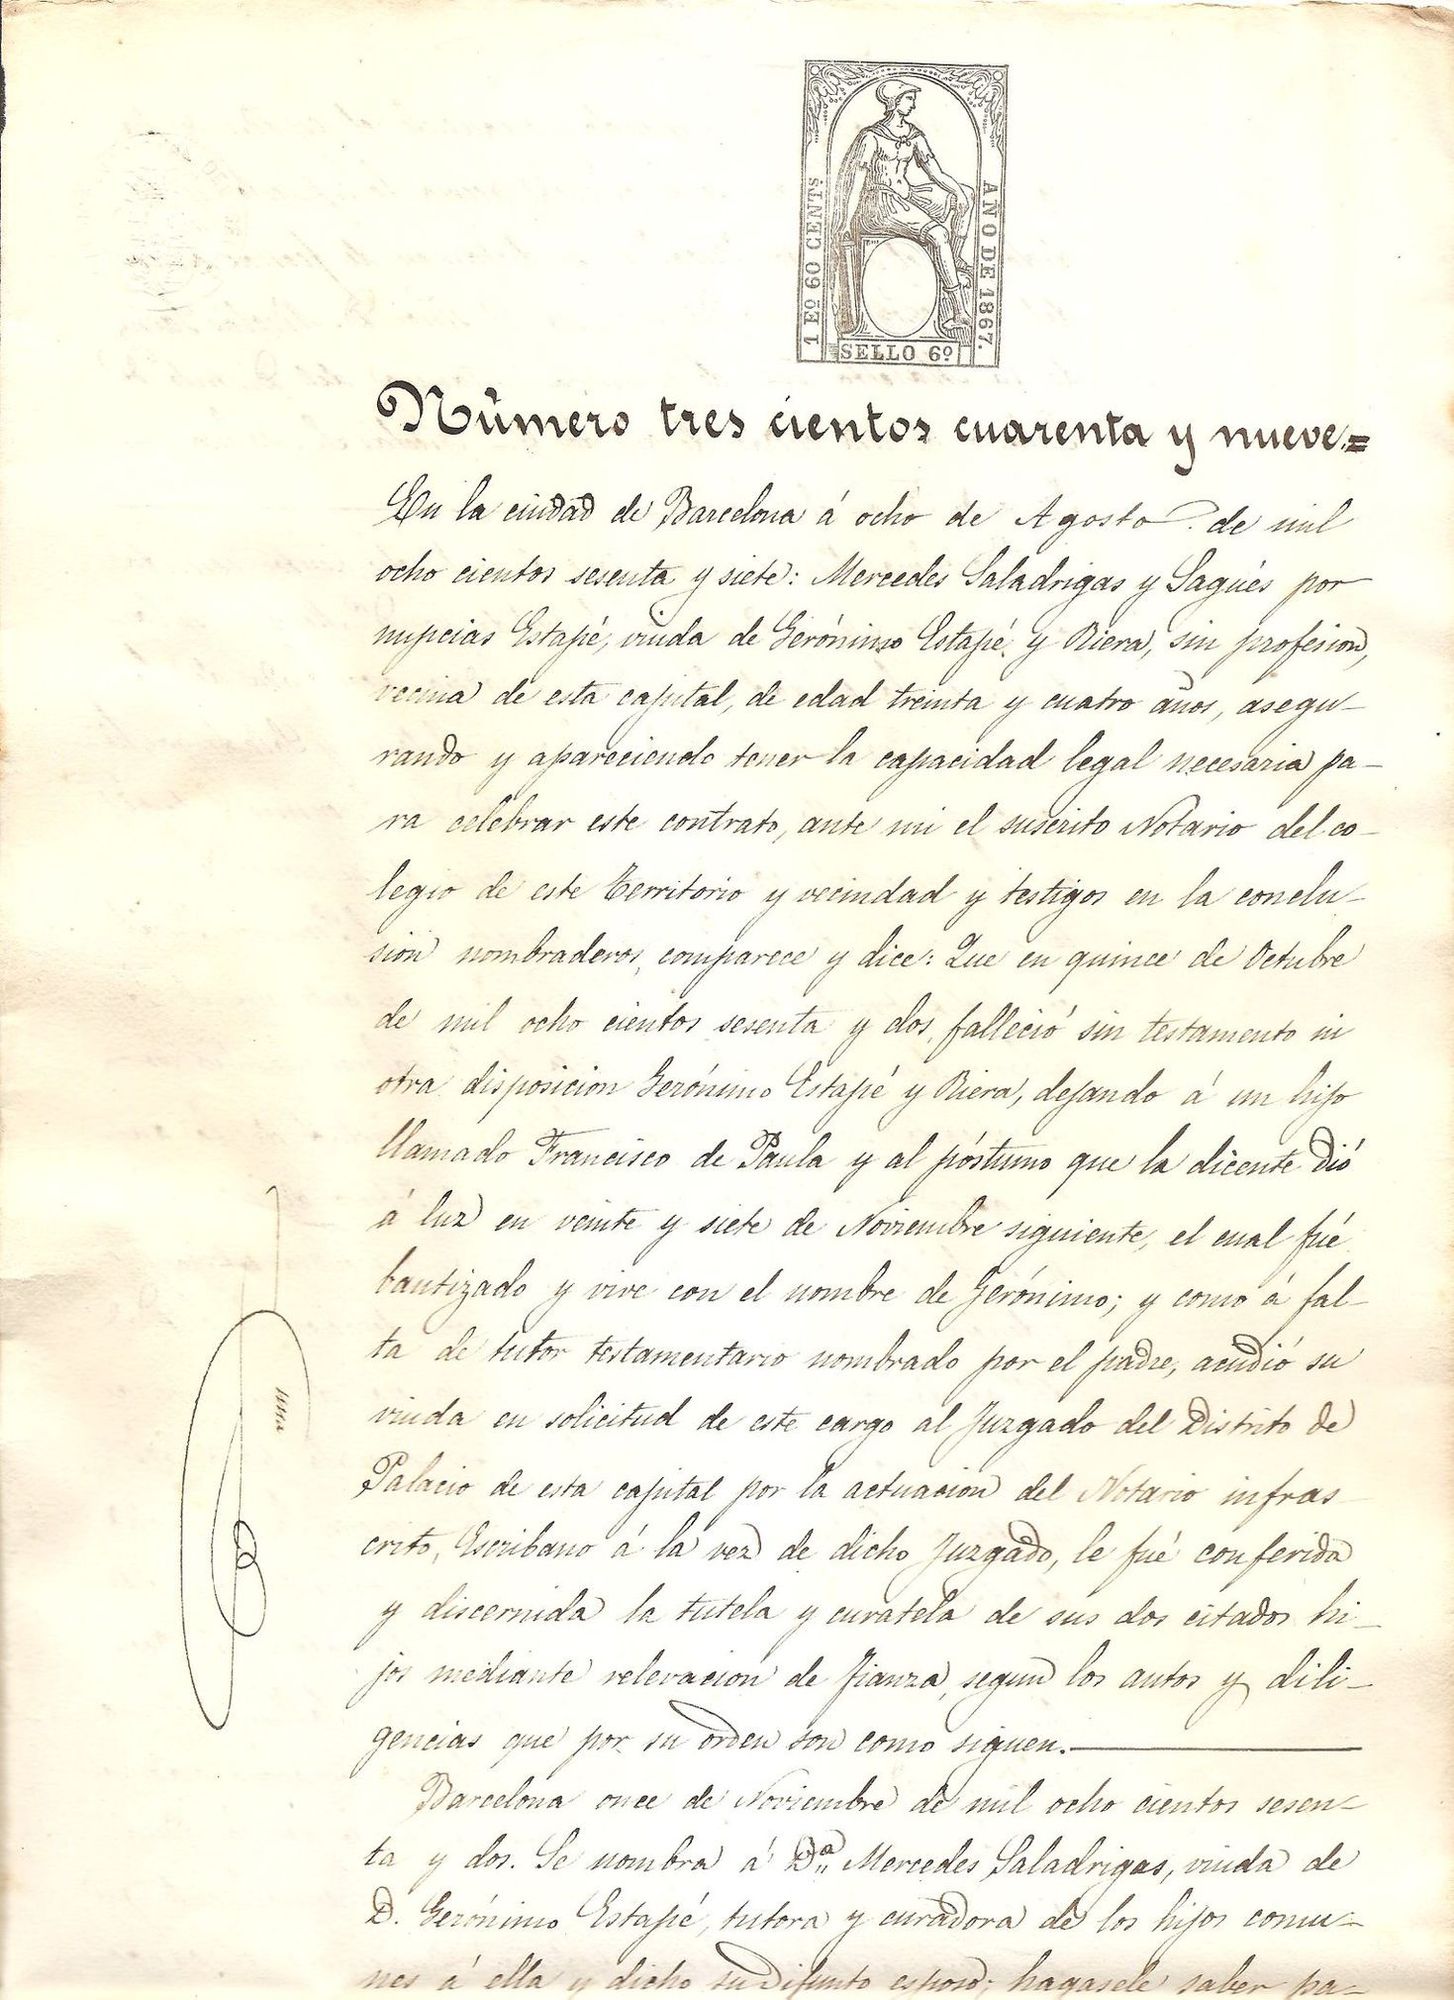 1 Eº 60 CENTS
AÑO DE 1867.
SELLO 6º
Número tres cientos cuarenta y nueve=
En la ciudad de Barcelona á ocho de Agosto de mil
ocho cientos sesenta y siete: Mercedes Saladrigas y Sagués por
nupcias Estapé, viuda de Gerónimo Estapé y Riera, sin profesion,
vecina de esta capital, de edad treinta y cuatro años, asegu-
rando y apareciendo tener la capacidad legal necesaria pa-
ra celebrar este contrato, ante mi el suscrito Notario del co-
legio de este Territorio y vecindad y testigos en la conclu-
sion nombraderos, comparece y dice: Que en quince de Octubre
de mil ocho cientos sesenta y dos, falleció sin testamento ni
otra disposicion Gerónimo Estapé y Riera, dejando á un hijo
llamado Francisco de Paula y al póstumo que la dicente dió
á luz en veinte y siete de Noviembre siguiente, el cual fué
bautizado y vive con el nombre de Gerónimo; y como á fal-
ta de tutor testamentario nombrado por el padre, acudió su
viuda en solicitud de este cargo al Juzgado del Distrito de
Palacio de esta capital por la actuacion del Notario infras-
crito, Escribano á la vez de dicho Juzgado, le fué conferida
y discernida la tutela y curatela de sus dos citados hi-
jos mediante relevacion de fianza, segun los autos y dili-
gencias que por su orden son como siguen.
Barcelona once de Noviembre de mil ocho cientos sesen-
ta y dos. Se nombra á Dª Mercedes Saladrigas, viuda de
D. Gerónimo Estapé, tutora y curadora de los hijos comu-
nes á ella y dicho su difunto esposo; hagasele saber pa-